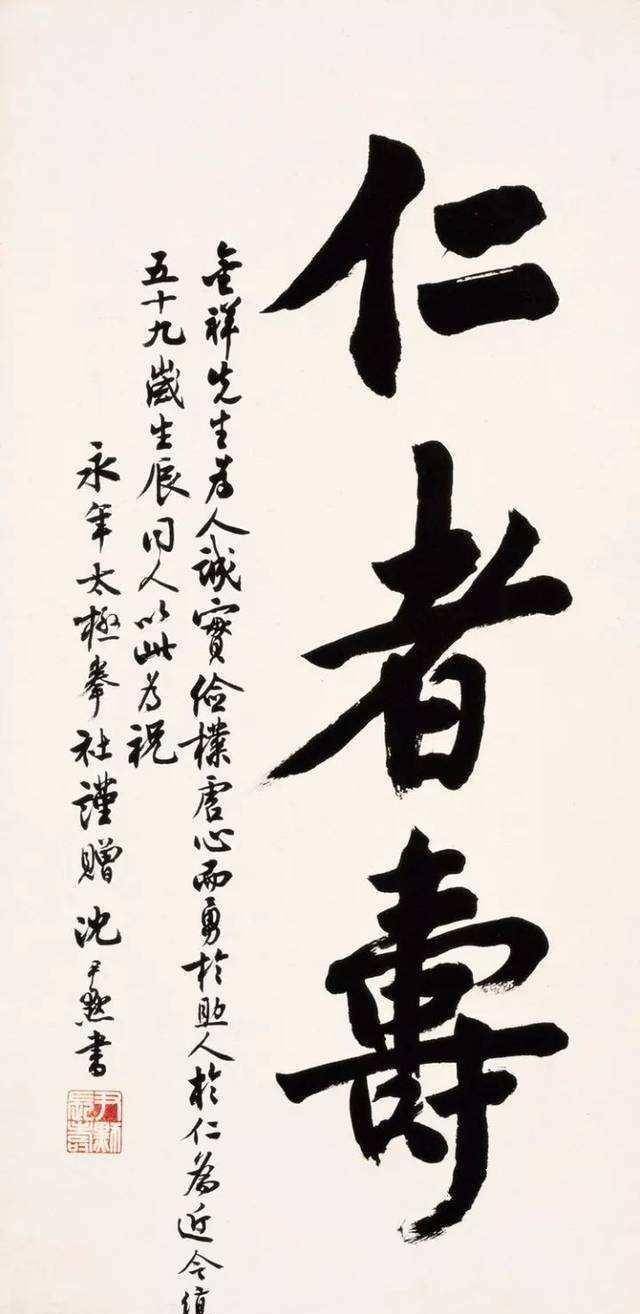 仁者壽
金祥先生為人誠實儉樸虛心而勇於助人於仁為近今值
五十九歲生辰同人以此為祝
永年太極拳社謹贈 沈尹默書
尹默長壽